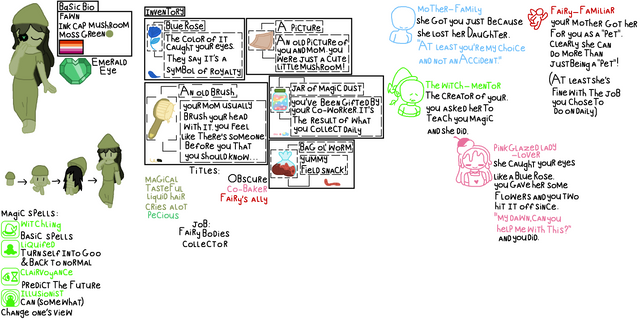 Basic Bio
Fawn
Ink Cap Mushroom
Moss Green
Emerald
Eye
Inventory
Blue Rose
The color of it
caught your eyes.
They say it's a
symbol of royalty
A picture
An old picture of
you and Mom. You
were just a cute
little mushroom!
An old brush
Your Mom usually
brush your head
with it. You feel
like there's someone
before you that
you should know...
Jar of magic dust!
You've been gifted by
your co-worker. It's
the result of what
you collect daily
Bag o' worm
Yummy
field snack!
Titles:
Magical
Tasteful
Liquid hair
Cries alot
Pecious
Obscure
Co-Baker
Fairy's ally
Job:
Fairy Bodies
Collector
Magic spells:
Witchling
Basic spells
Liquified
Turn self into goo
& back to normal
Clairvoyance
Predict the future
Illusionist
Can (somewhat)
change one's view
Mother-Family
She got you just because
she lost her daughter.
"At least you're my choice
and not an accident."
Fairy-Familiar
Your mother got her
for you as a "pet".
Clearly she can
do more than
just being a "pet"!
(At least she's
fine with the job
you chose to
do on daily)
The Witch-Mentor
The creator of your.
You asked her to
teach you magic
and she did.
Pink Glazed Lady
-Lover
She caught your eyes
like a blue rose.
You gave her some
flowers and you two
hit it off since.
"My Dawn, can you
help me with this?"
and you did.